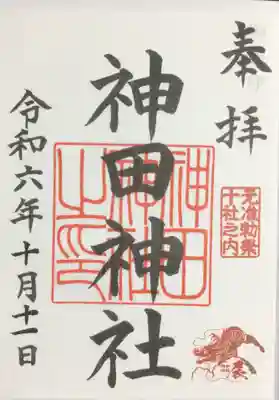 奉拝
元准勅祭
十社之内
神田神社
神田
神社
之印
令和六年十月十一日